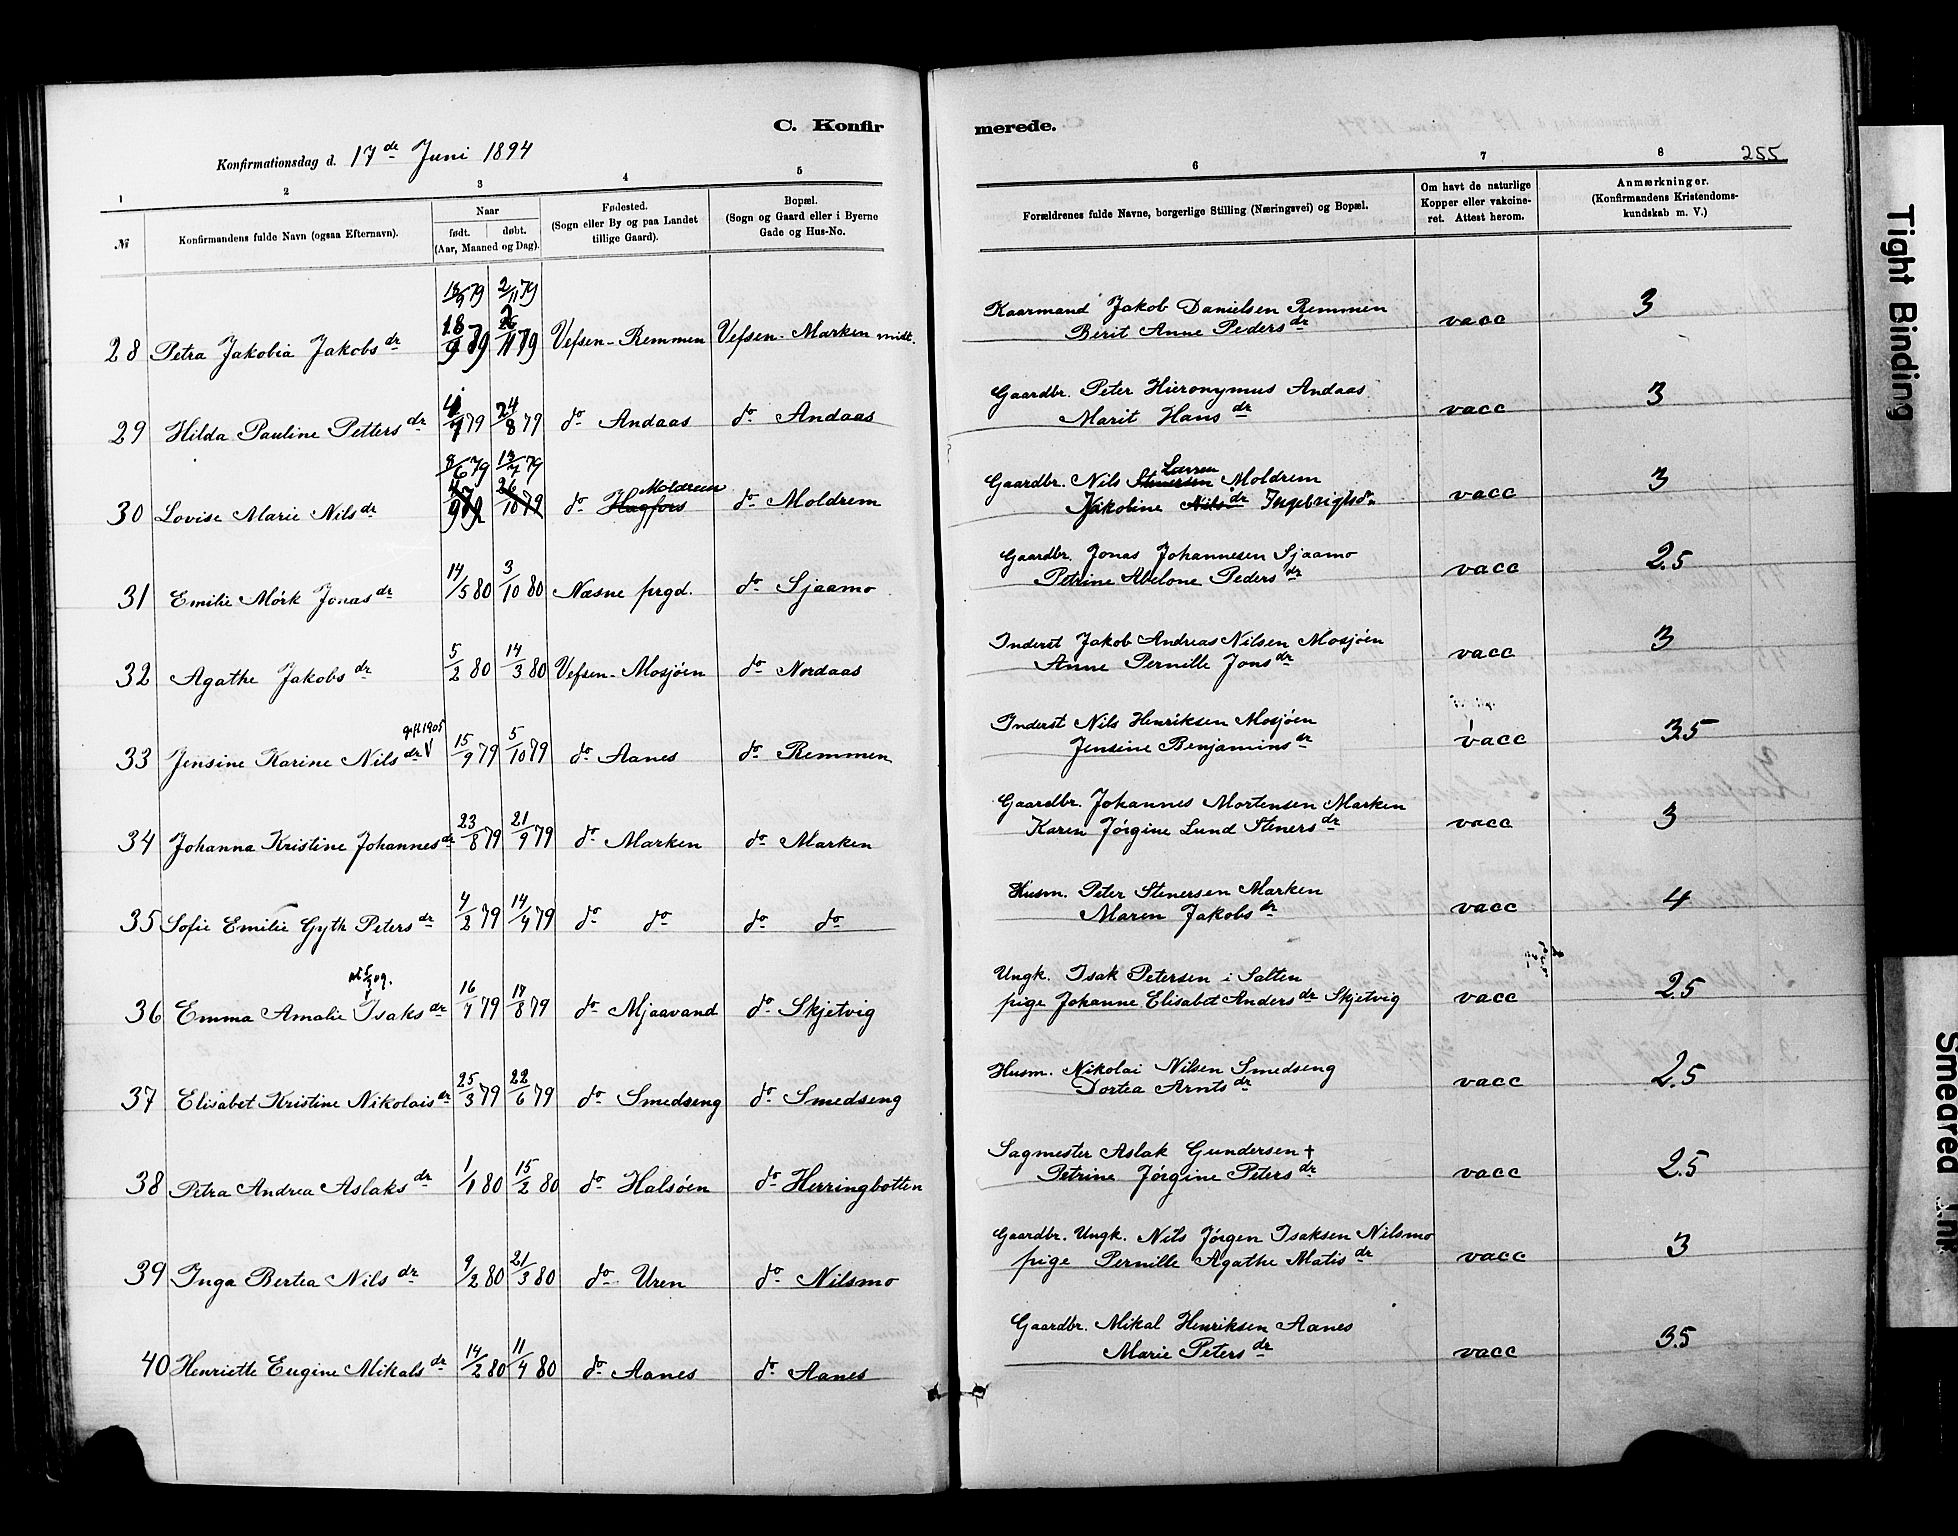 C. Konfirmerede.
Konfirmationsdag d. 17de Juni 1894
255
1 2 3 4 5 6 7 8
№ Konfirmandens fulde Navn (ogsaa Efternavn). Naar født. døbt. (Aar, Maaned og Dag). Fødested. (Sogn eller By og paa Landet tillige Gaard). Bopæl. (Sogn og Gaard eller i Byerne Gade og Hus-No. Forældrenes fulde Navne, borgerlige Stilling (Næringsvei) og Bopæl. Om havt de naturlige Kopper eller vakcineret. Attest herom. Anmærkninger. (Konfirmandens Kristendomskundskab m. V.)
18/9 79 2/11 79
28 Petra Jakobia Jakobsdr 18/9 79 Vefsen-Remmen Vefsen-Marken midt. Kaarmand Jakob Danielsen Remmen vacc 3
Berit Anne Pedersdr
29 Hilda Pauline Pettersdr 24/8 79 do Andaas do Andaas Gaardbr. Peter Hieronymus Andaas vacc 3
Marit Hansdr
8/6 79 13/7 79 Moldrem Larsen
30 Lovise Marie Nilsdr 4/9 79 26/10 79 do Hagfors do Moldrem Gaardbr. Nils Stenersen Moldrem vacc 3
Jakoline Nilsdr Ingebrigtsd.
31 Emilie Mörk Jonasdr 14/5 80 3/10 80 Næsne prgd. do Sjaamo Gaardbr. Jonas Johannesen Sjaamo vacc 2.5
Petrine Abelone Pedersdr
32 Agathe Jakobsdr 5/2 80 14/3 80 Vefsen-Mosjöen do Nordaas Inderst Jakob Andreas Nilsen Mosjöen vacc 3
Anne Pernille Jonsdr
gift 1905
33 Jensine Karine Nilsdr 15/9 79 5/10 79 do Aanes do Remmen Inderst Nils Henriksen Mosjöen vacc 3.5
Jensine Benjaminsdr
34 Johanna Kristine Johannesdr 23/8 79 21/9 79 do Marken do Marken Gaardbr. Johannes Mortensen Marken vacc 3
Karen Jörgine Lund Stenersdr
35 Sofie Emilie Gyth Petersdr 4/2 79 14/4 79 do do do do Husm. Peter Stenersen Marken vacc 4
Maren Jakobsdr
36 Emma Amalie Isaksdr 16/1 79 17/8 79 do Mjaavand do Skjetvig Ungk. Isak Petersen i Salten vacc 2.5
pige Johanne Elisabet Andersdr Skjetvig
37 Elisabet Kristine Nikolaisdr 25/3 79 22/6 79 do Smedseng do Smedseng Husm. Nikolai Nilsen Smedseng vacc 2.5
Dortea Arntsdr
38 Petra Andrea Aslaksdr 1/1 80 15/2 80 do Halsöen do Herringbotten Sagmester Aslak Gundersen † vacc 2.5
Petrine Jörgine Petersdr
39 Inga Bertea Nilsdr 9/2 80 21/3 80 do Uren do Nilsmo Gaardbr. Ungk. Nils Jörgen Isaksen Nilsmo vacc 3
pige Pernille Agathe Matisdr
40 Henriette Eugine Mikalsdr 14/2 80 11/4 80 do Aanes do Aanes Gaardbr. Mikal Henriksen Aanes vacc 3.5
Marie Petersdr
Tight Binding
Smeared Ink